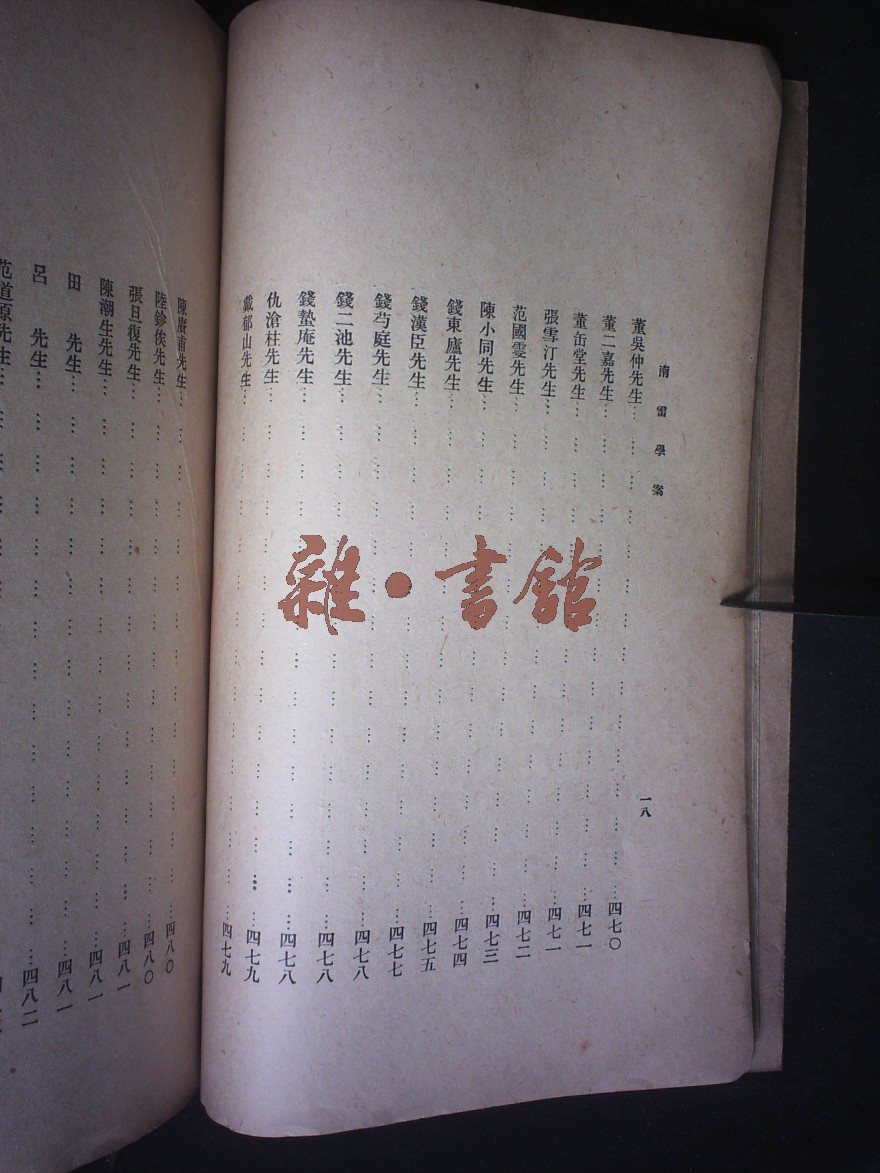 南雷學案 一八
董吳仲先生……四七〇
董二嘉先生……四七一
董缶堂先生……四七一
張雪汀先生……四七二
范國雯先生……四七三
陳小同先生……四七四
錢東廬先生……四七五
錢漢臣先生……四七七
錢芍庭先生……四七八
錢二池先生……四七八
錢蟄庵先生……四七八
仇滄柱先生……四七九
戴郁山先生……四七九
陳甫先生……四八〇
陸鉁俟先生……四八〇
張旦復先生……四八一
陳潮生先生……四八一
田 先生……四八一
呂 先生……四八二
范道原先生……
雜·書館